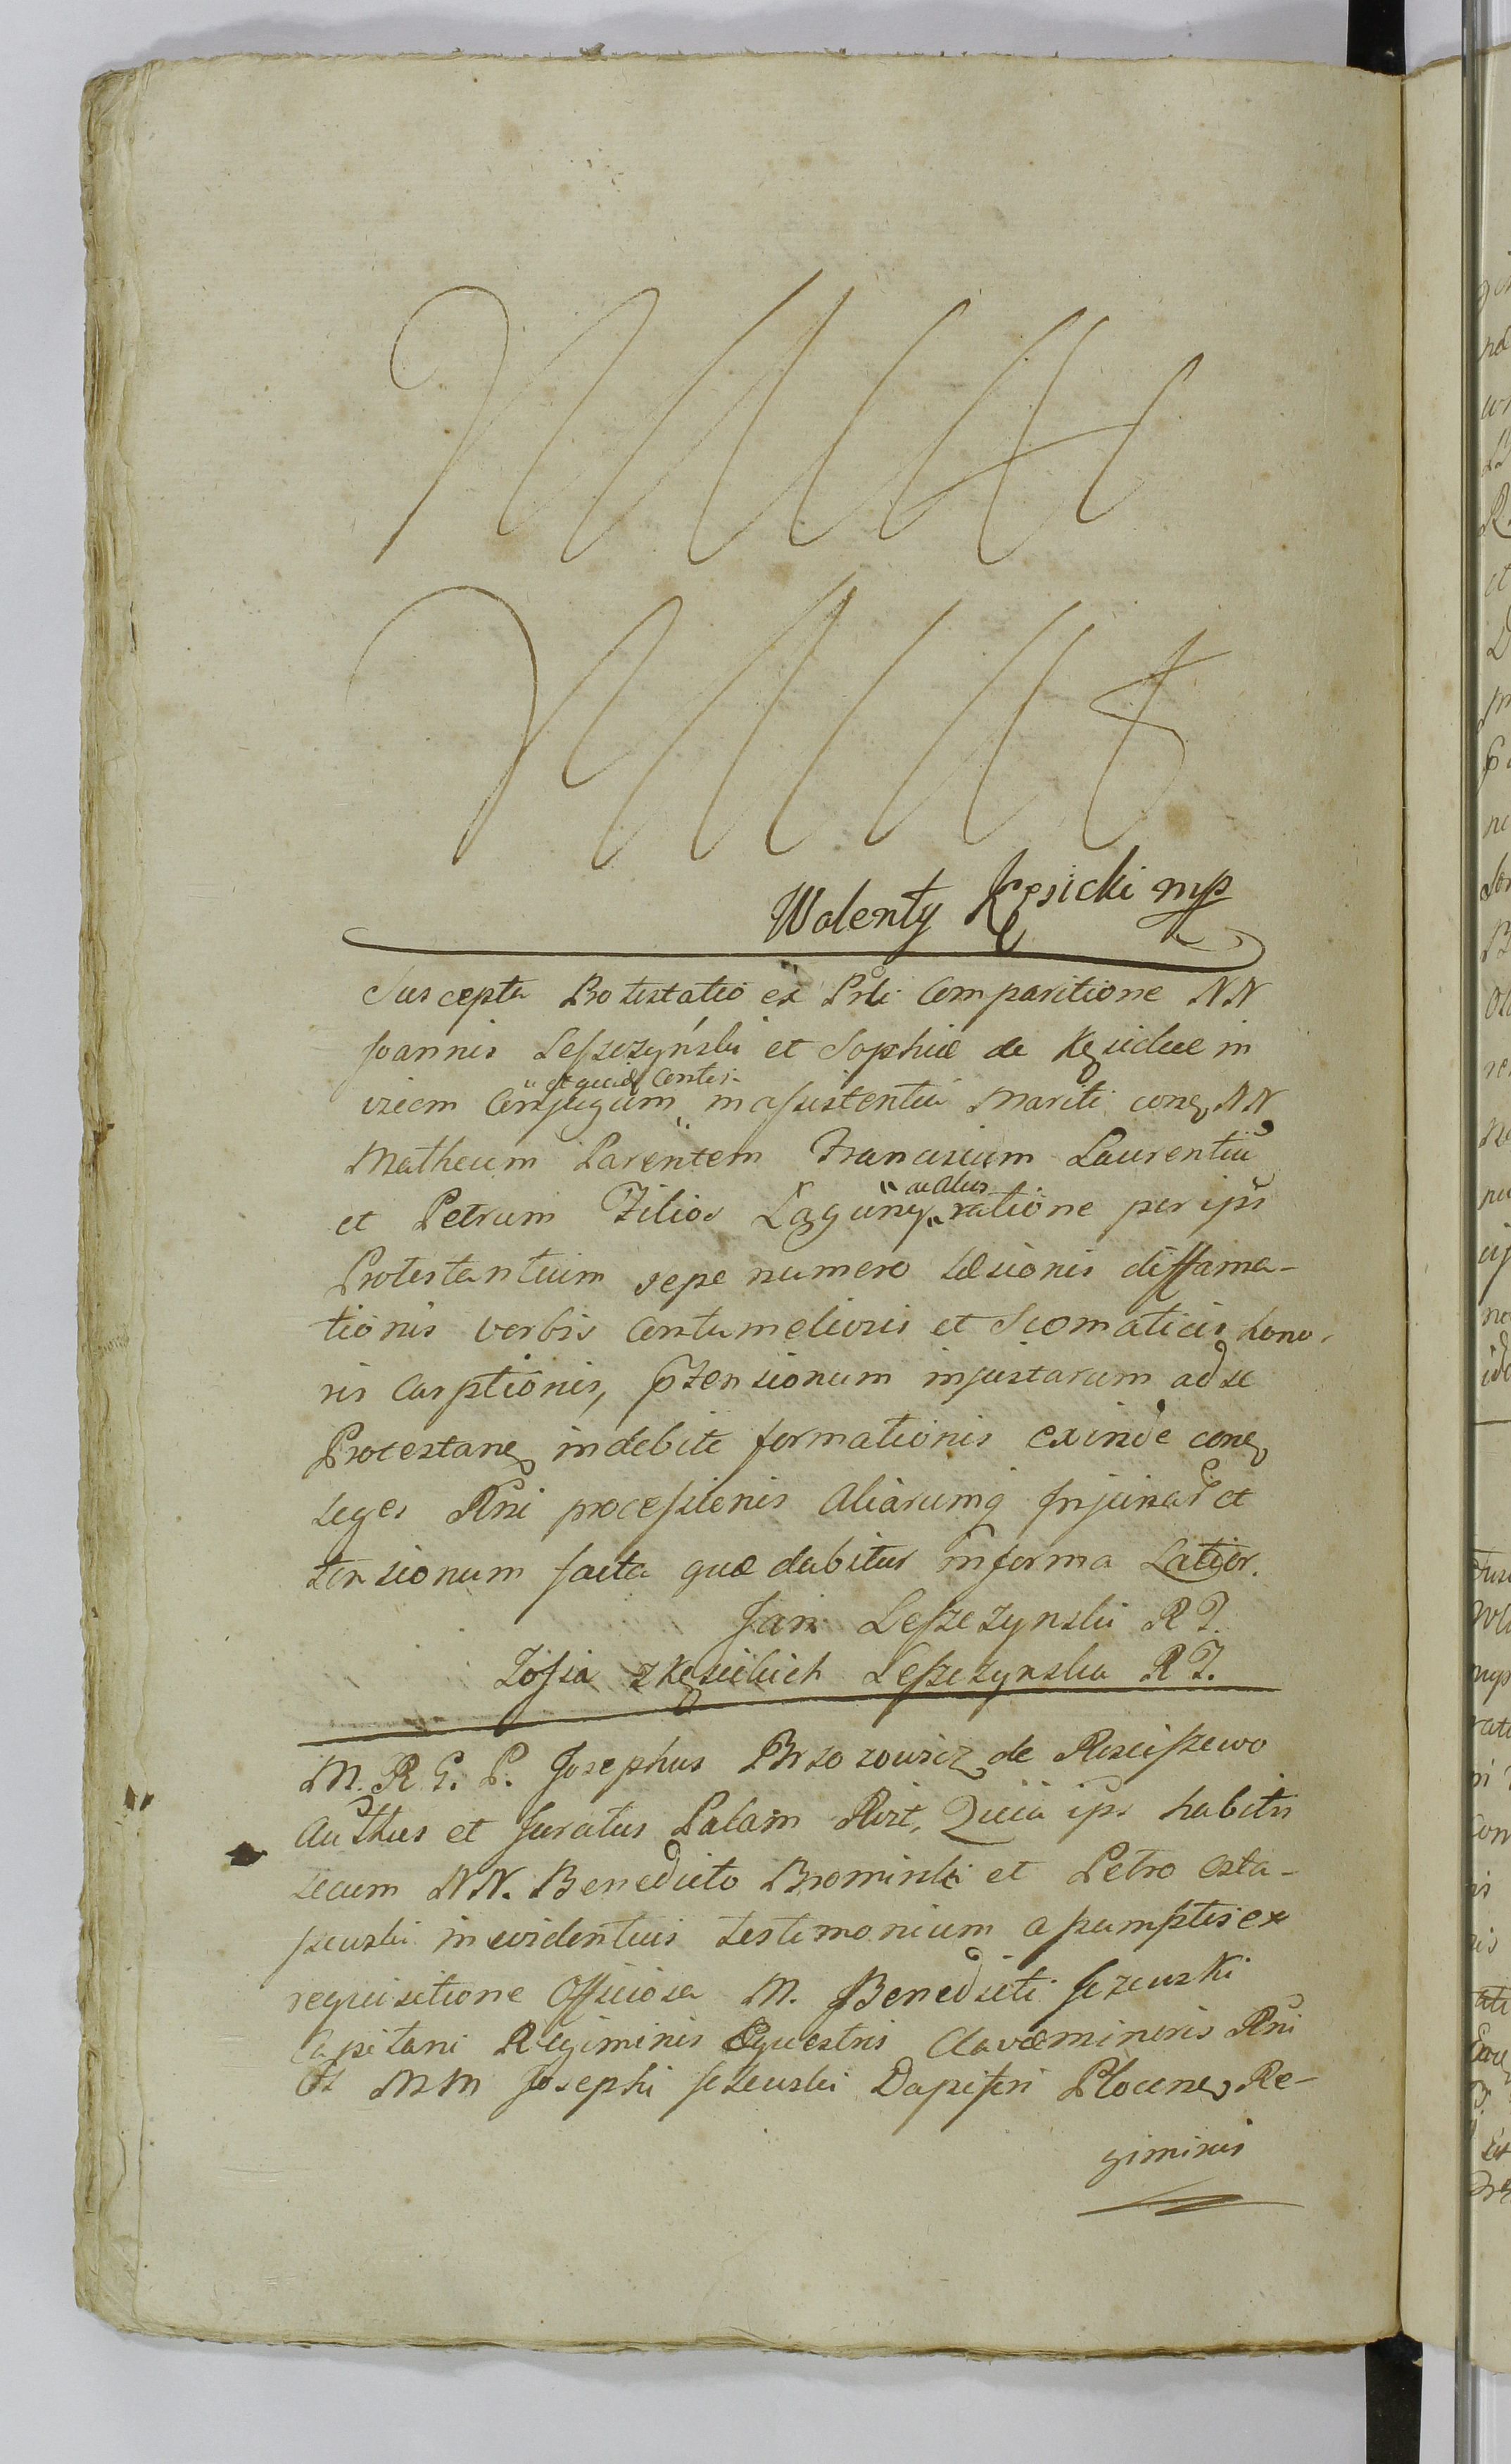 Walenty Kęsicki mp
Suscepta Protestatio ex Prli Comparitione NN
Joannis Leszczyński et Sophiæ de Kęsickie in
vicem Conjugum et quid Contes. in assistentia Mariti conq NN
Matheum Parentem Franciscum Laurentiū
et Petrum Filios Łaguny ac alios ratione per ips
Protestantium sepe numero Læsionis diffama-
tionis verbis Contumeliosis et Scomaticis hono-
ris Carptionis, ptensionum injustarum ad se
Protestanq indebite formationis exinde conq
Leges Rni processionis Aliarumq Injuriar et
tensionum facta quæ dabitur in forma Latior.
Jan Leszczynski R P.
Zofia z Kęsickich Leszczynska R P.
M. R. G. P. Josephus Brzozowicz de Rosciszewo
Authus et Juratus Palam Rizt, Quia ips habitis
secum NN. Benedicto Bromirski et Petro Osta-
szewski in evidentius testimonium assumptis ex
requisitione Officiosa M. Benedicti Jezewski
Capitani Regiminis Equestris Clavæ minoris Rni
et MM Josephi Jezewski Dapiferi Plocenq Re-
giminis